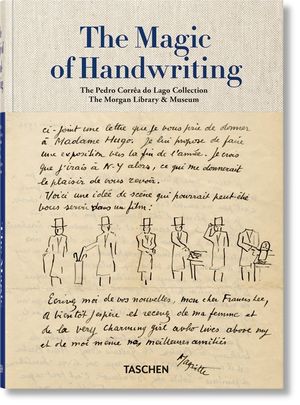 The Magic
of Handwriting
The Pedro Corrêa do Lago Collection
The Morgan Library & Museum
ci-joint une lettre que je vous prie de donner
à Madame Hugo. Je lui propose de faire
une exposition vers la fin de l'année. Je crois
que j'irais à N-Y alors, ce qui me donnerait
le plaisir de vous revoir.
Voici une idée de scène qui pourrait peut-être
vous servir dans un film:
Écrivez moi de vos nouvelles, mon cher Francis Lee,
A bientôt j'espère et recevez de ma femme et
de la very charming girl who lives above my
et de moi même nos meilleures amitiés
Magritte
TASCHEN